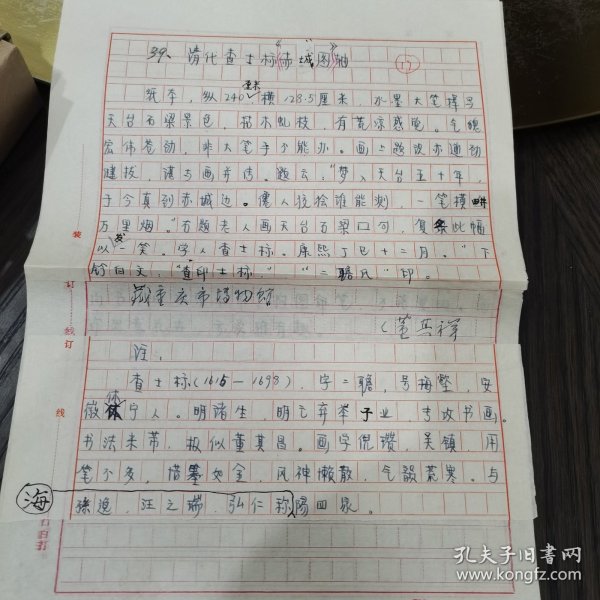 39、清代查士标《"赤城"图》轴
15
纸本，纵240厘米横128.5厘米，水墨大笔挥写
天台石梁景色，花木虬枝，有荒凉感觉。气魄
宏伟卷动，非大笔手不能办。画上题识亦通动
健拔，诗与画并传。题云："梦入天台五十年，
于今真到赤城边。僊人狡狯谁能测，一笔横
万里烟。"右题老人画天台石梁口句，复系此幅
以发一笑。学人查士标。康熙丁巳十二月。"下
钤白文："查印士标"，"二瞻氏"印。
藏重庆市博物馆
（董其祥
注：
查士标（1615—1698），字二瞻，号梅壑，安
徽休宁人。明诸生，明亡弃举子业，专攻书画。
书法米芾，极似董其昌。画学倪瓒，吴镇，用
笔不多，惜墨如金，风神懒散，气韵荒寒。与
孙逸，汪之瑞，弘仁称海阳四家。
装
订
线
孔夫子旧书网
www.kongfz.com